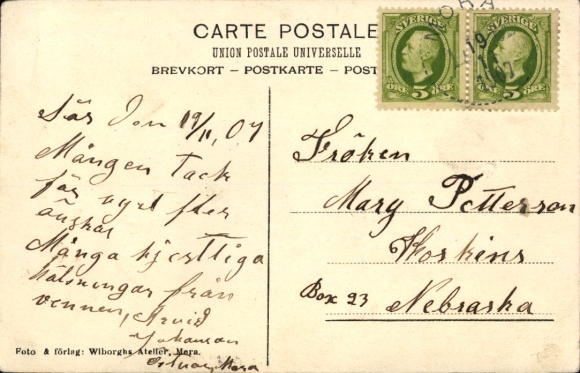 CARTE POSTALE
UNION POSTALE UNIVERSELLE
BREVKORT – POSTKARTE – POST
SVERIGE
5
ÖRE
SVERIGE
5
ÖRE
MORA
19
11
07
Sär Don 19/11, 07
Mången tack
för kyrt fter
Många hjertliga
hälsningar från
vennen, Arvid
Johanson
Mora
Fröken
Mary Petterson
Hoskins
Box 23 Nebraska
Foto & förlag: Wiborghs Atelier, Mora.